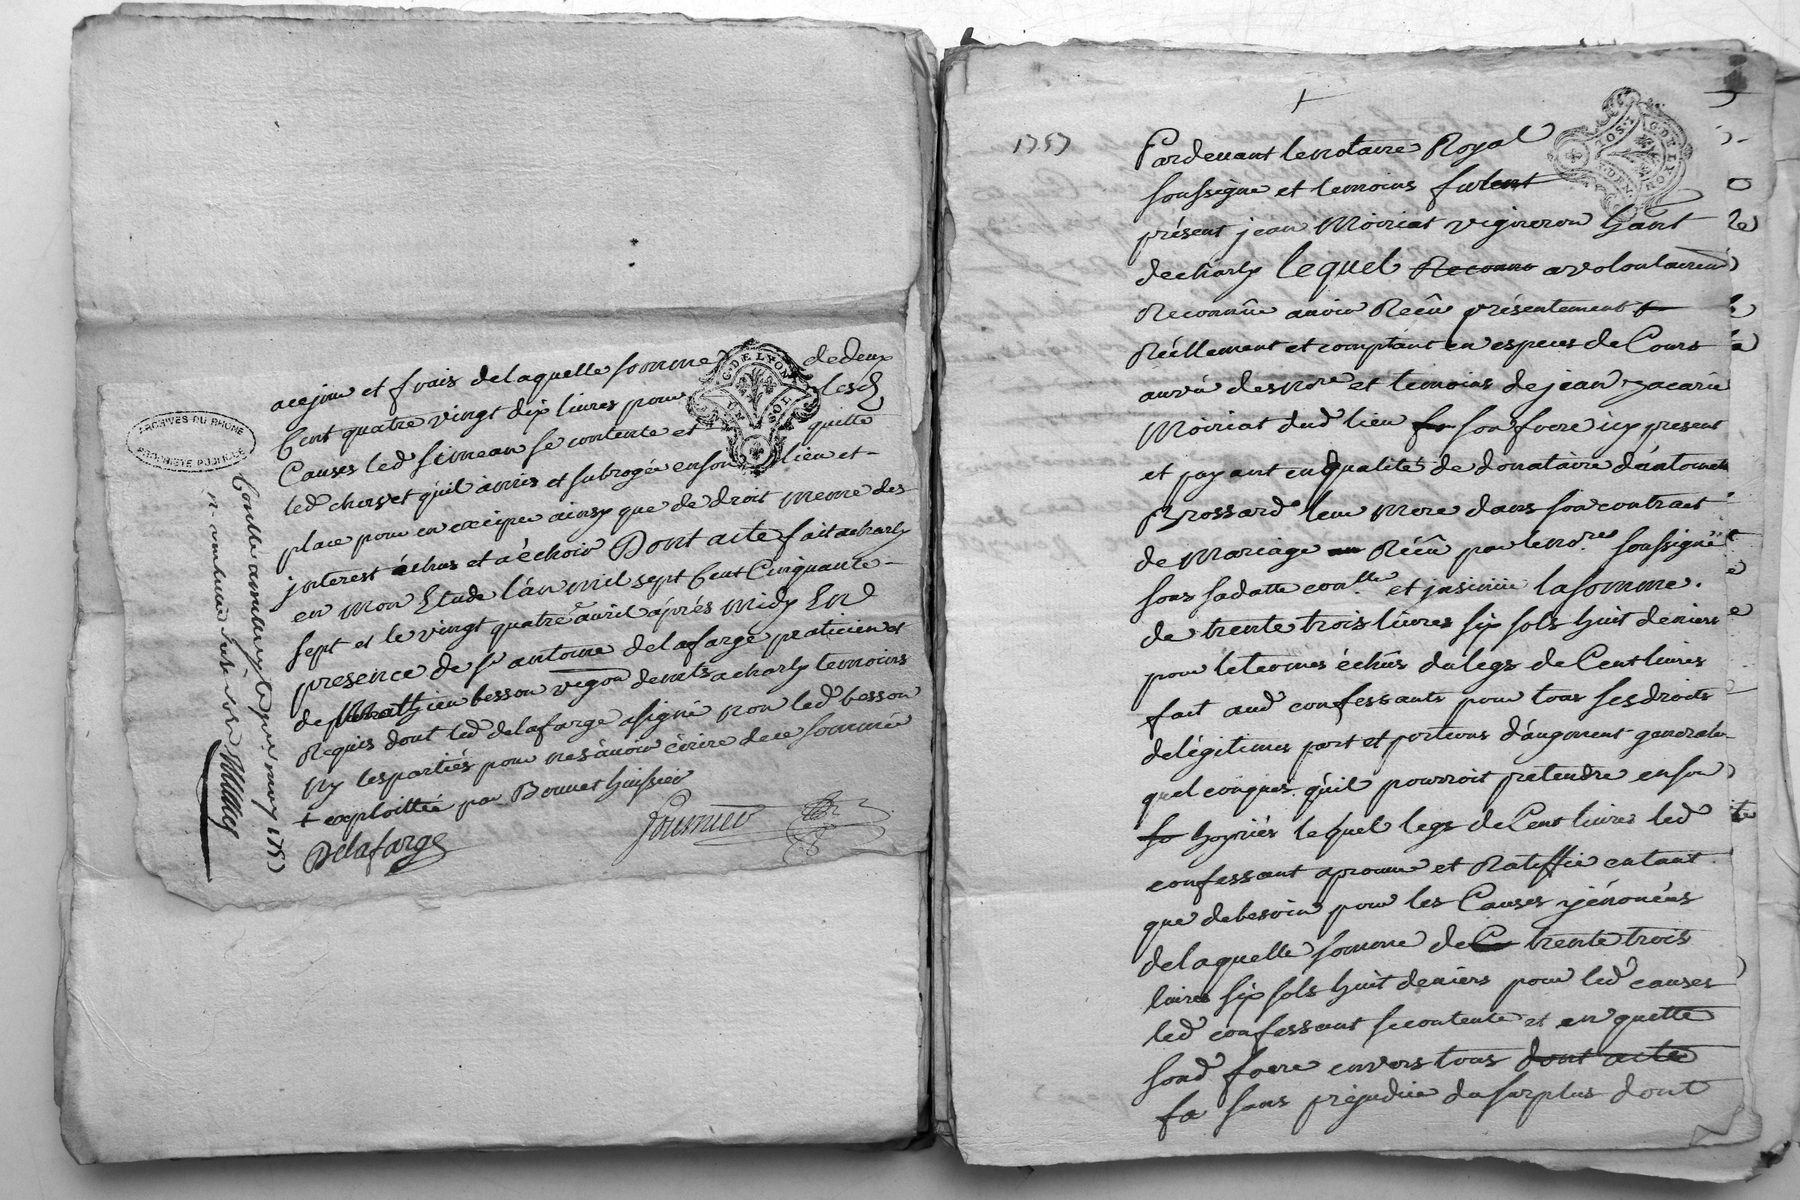 acejour et frais de laquelle somme de deux
Cent quatre vingt dix livres pour lesd
Causes led simean se contente et quitte
led chervet qu'il à mis et subrogée en son lieu et
place pour en exciper ainsy que de droit meme des
jnterest échus et à échoir Dont acte fait acharly
en mon Etude l'an mil sept Cent Cinquante
sept et le vingt quatre avril aprés Midy En
presence de sr antoine delafarge praticien et
de Mathieu besson vigon dem.ts a charly temoins
Requis dont led delafarge a signé non led besson
ny les partiés pour ne sçavoir écrire de ce sommé
+ exploittée par Bonnet huissier
Delafarge
Fournier
ARCHIVES DU RHÔNE
PROPRIÉTÉ PUBLIQUE
G. DE LYON
UN SOL
1757
Pardevant le notaire Royal
soussigne et temoins furent
présent jean Moiriat vigneron hant
de charly lequel Reconnu a volontairem
Reconnûe avoir Recû présentement
Réellement et comptant en especes de Cours
au vû des no.re et temoins de jean zacarie
Moiriat dud lieu son frere icy present
et payant en qualité de donatàire d'antoinette
Brossard leur Mere dans son contract
de Mariage Récû par le no.re soussigné
sous sa datte con.lle et jnsinüe la somme
de trente trois livres six sols huit deniers
pour le termes échûs du legs de Cent livres
fait aud confessants pour tous ses droits
de légitimes part et portions d'augment generale
quelconques qu'il pourroit pretendre en son
hoyriés lequel legs de Cent livres led
confessant aprouve et Ratiffie en tant
que de besoin pour les Causes y énoncés
de laquelle somme de trente trois
livres six sols huit deniers pour led causes
led confessant se contente et en quitte
sond frere envers tous dont acte
fa sans préjudice du surplus dont
G. DE LYON